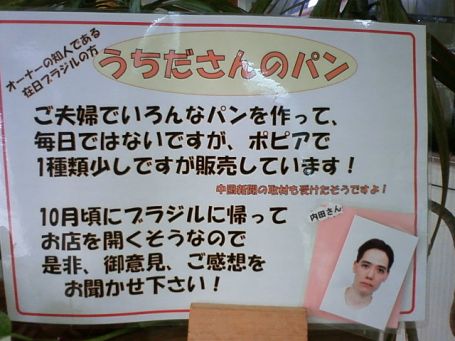 オーナーの知人である
在日ブラジルの方
うちださんのパン
ご夫婦でいろんなパンを作って、
毎日ではないですが、ポピアで
1種類少しですが販売しています！
中国新聞の取材も受けたそうですよ！
10月頃にブラジルに帰って
お店を開くそうなので
是非、御意見、ご感想を
お聞かせ下さい！
内田さん